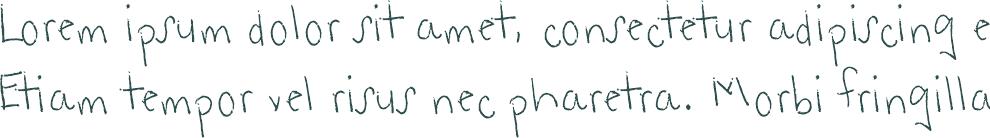 Lorem ipsum dolor sit amet, consectetur adipiscing e
Etiam tempor vel risus nec pharetra. Morbi fringilla